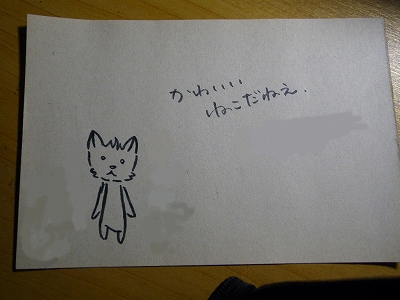 かわいい
ねこだねぇ.